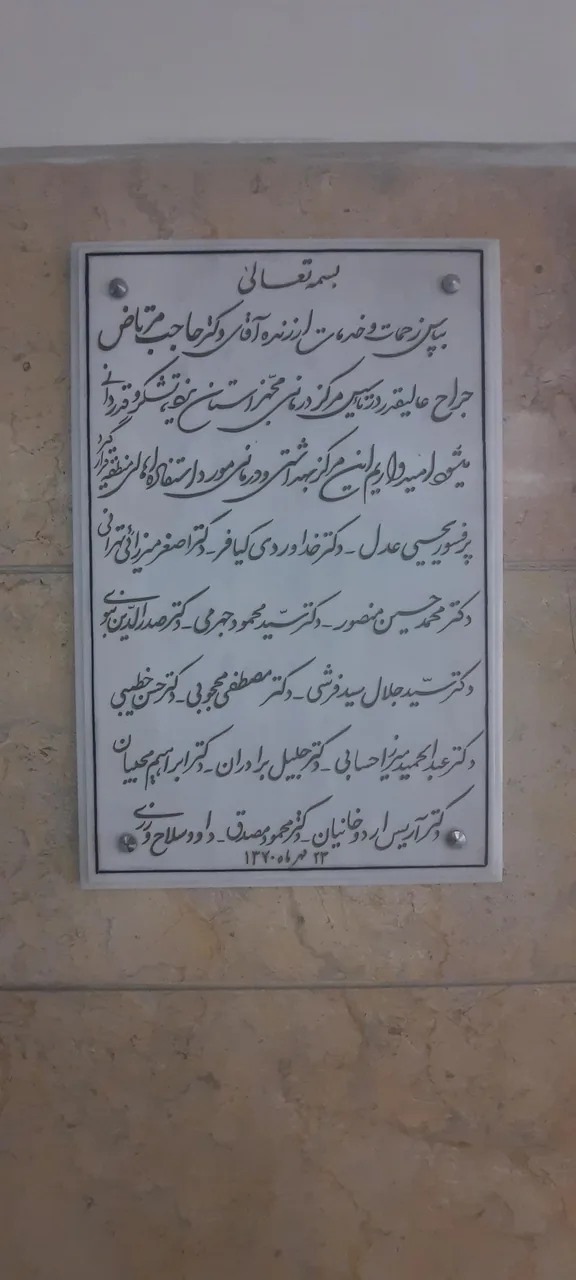 بسمه تعالی
بپاس زحمات و خدمات ارزنده آقای دکتر حاجب مرتاض
جراح عالیقدر در تاسیس مرکز درمانی مجهز استان تشکر و قدردانی
میشود امیدواریم این مرکز بهداشتی و درمانی مورد استفاده اهالی منطقه قرار گیرد
پرفسور یحیی عدل ـ دکتر خداوردی کیافر ـ دکتر اصغر میرزائی تهرانی
دکتر محمد حسین منصور ـ دکتر سیّد محمود جهرمی ـ دکتر صدرالدّین نبوی
دکتر سیّد جلال سید فرشی ـ دکتر مصطفی محجوبی ـ دکتر حسن خطیبی
دکتر عبدالحمید میرزا حسابی ـ دکتر جلیل برادران ـ دکتر ابراهیم محبیان
دکتر آریس اردوخانیان ـ دکتر محمود مصدق ـ داود سلاح ورزی
۲۳ مهر ماه ۱۳۷۰